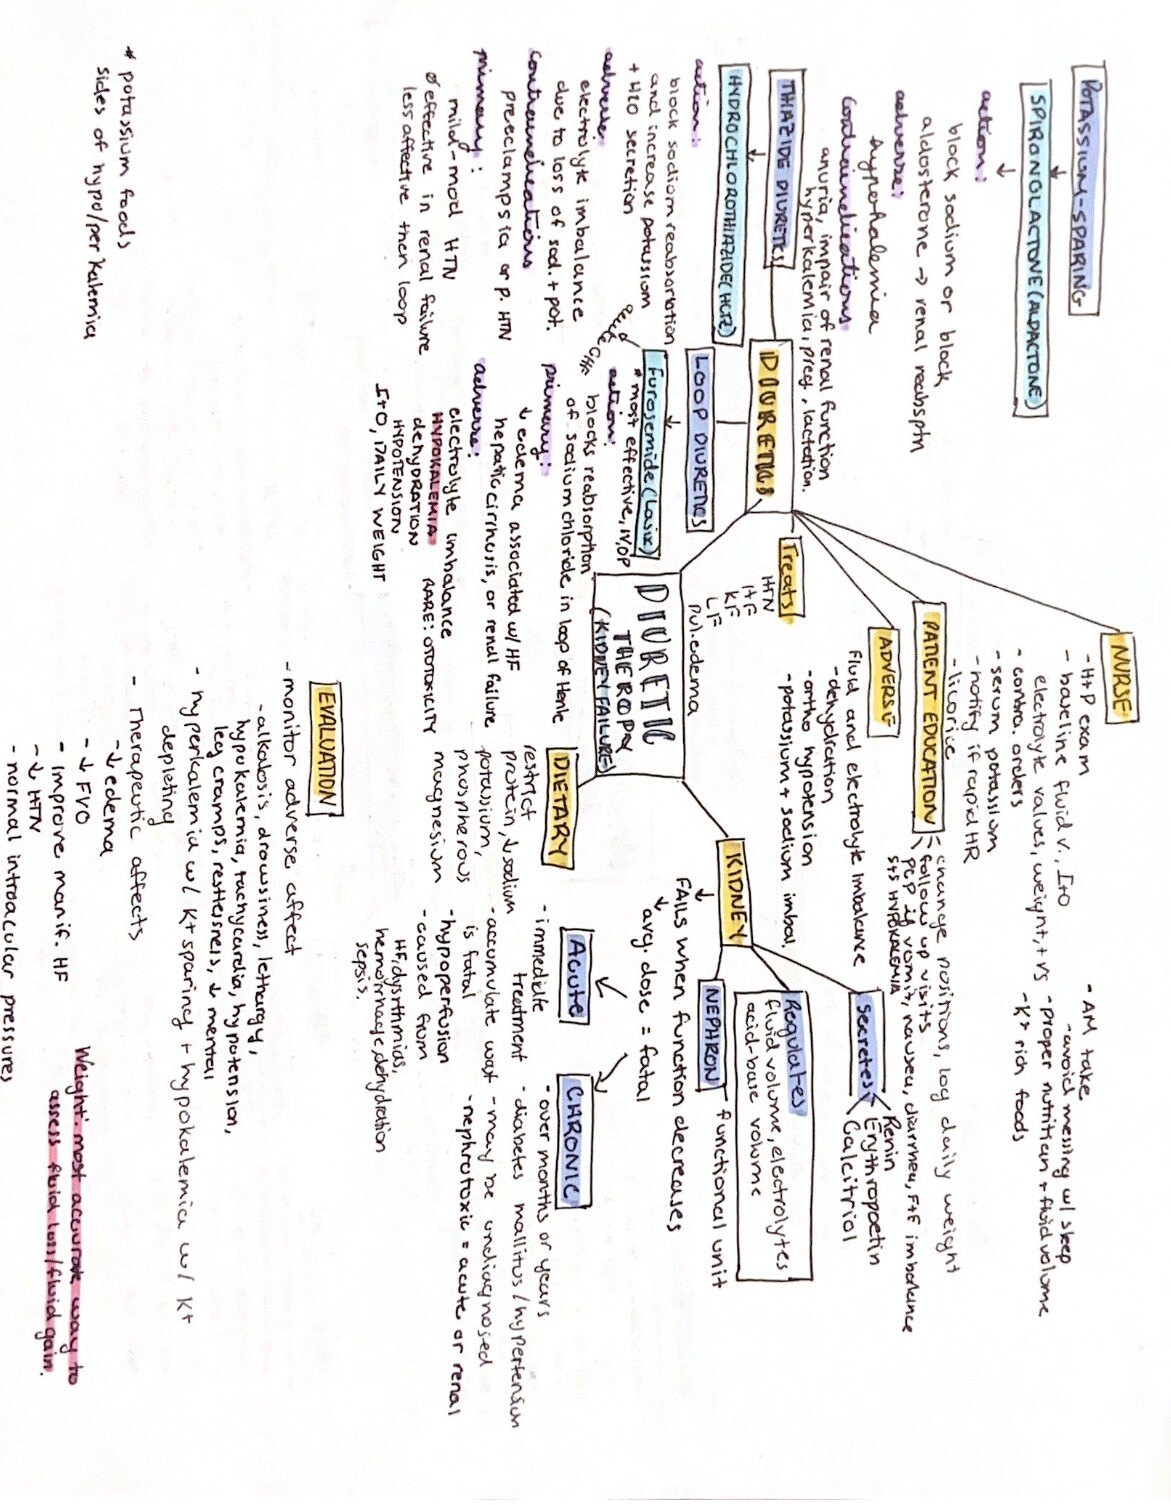 POTASSIUM-SPARING
SPIRONOLACTONE (ALDACTONE)
action:
block sodium or block
aldosterone → renal reabsptn
adverse:
hypokalemia
contraindications
anuria, impair of renal function
hyperkalemia, preg, lactation.
THIAZIDE DIURETICS
HYDROCHLOROTHIAZIDE (HCTZ)
action:
block sodium reabsorbtion
and increase potassium
+ H2O secretion
adverse
electrolyte imbalance
due to loss of sod. + pot.
contraindications
preeclampsia or p. HTN
primary:
mild-mod HTN
Ø effective in renal failure
less affective then loop
* potassium foods
sides of hypo/per kalemia
DIURETICS
LOOP DIURETICS
Furosemide (Lasix)
* most effective, IV/OP
action:
blocks reabsorption
of sodium chloride in loop of Henle
primary:
↓ edema associated w/ HF
hepatic cirrhosis, or renal failure
adverse:
electrolyte imbalance
HYPOKALEMIA
dehydration
HYPOTENSION
RARE: OTOTOXICITY
I+O, DAILY WEIGHT
Treats
HTN
HF
KF
LF
pul. edema
DIURETIC
THEROPY
(KIDNEY FAILURE)
NURSE
- H+P exam
- baseline fluid v., I+O
electrolyte values, weight, + VS
- contra. orders
- serum potassium
- notify if rapid HR
- licorice
- AM take
- avoid messing w/ sleep
- proper nutrition + fluid volume
- K+ rich foods
PATIENT EDUCATION
change positions, log daily weight
follow up visits
PCP if vomit, nausea, diarrhea, F+E imbalance
S+S HYPOKALEMIA
ADVERSE
Fluid and electrolyte imbalance
- dehydration
- ortho hypotension
- potassium + sodium imbal.
KIDNEY
Secretes
Renin
Erythropoetin
Calcitriol
Regulates
fluid volume, electrolytes
acid-base volume
NEPHRON
functional unit
FAILS when function decreases
avg. dose = fatal
DIETARY
restrict
protein, ↓ sodium
potassium,
phospherous
magnesium
Acute
- immediate
treatment
- accumulate wast
is fatal
- hypoperfusion
- caused from
HF, dysrthmias,
hemorrhage, dehydration
sepsis.
CHRONIC
- over months or years
- diabetes mallitus/hypertension
- may be undiagnosed
- nephrotoxic = acute or renal
EVALUATION
- monitor adverse affect
- alkalosis, drowsiness, lethargy,
hypokalemia, tachycardia, hypotension,
leg cramps, restlesness, ↓ mental
- hyperkalemia w/ K+ sparing + hypokalemia w/ K+
depleting
- Therapeutic affects
- ↓ edema
- ↓ FVO
- improve manif. HF
- ↓ HTN
- normal intraocular pressures
Weight: most accurate way to
assess fluid loss/fluid gain.